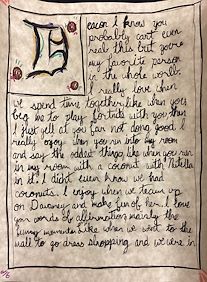 Deacon I know you
probably can't even
read this but you're
my favorite person
in the whole world.
I really love when
we spend time together like when you
beg me to play fortnite with you then
I just yell at you for not doing good. I
really enjoy when you run into my room
and say the oddest things like when you ran
in my room with a coconut with Nutella
in it. I didn't even know we had
coconuts. I enjoy when we team up
on and make fun of her. I love
your words of affirmation mainly the
funny moments like when we went to the
mall to go dress shopping and we were in